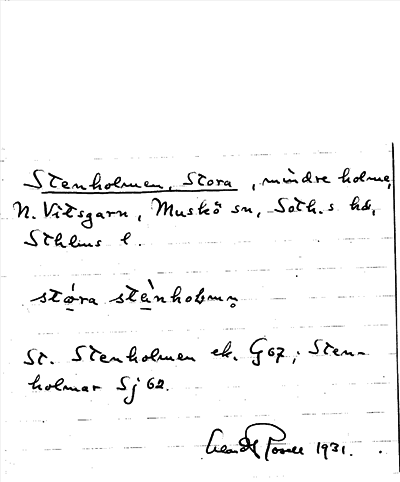 Stenholmen, Stora, mindre holme,
N. Vitsgarn, Muskö sn, Soth.s hd,
Sthlms l.
stóra stènholmn̥
St. Stenholmen ek. G67; Sten-
holmar Sj 62.
1931.